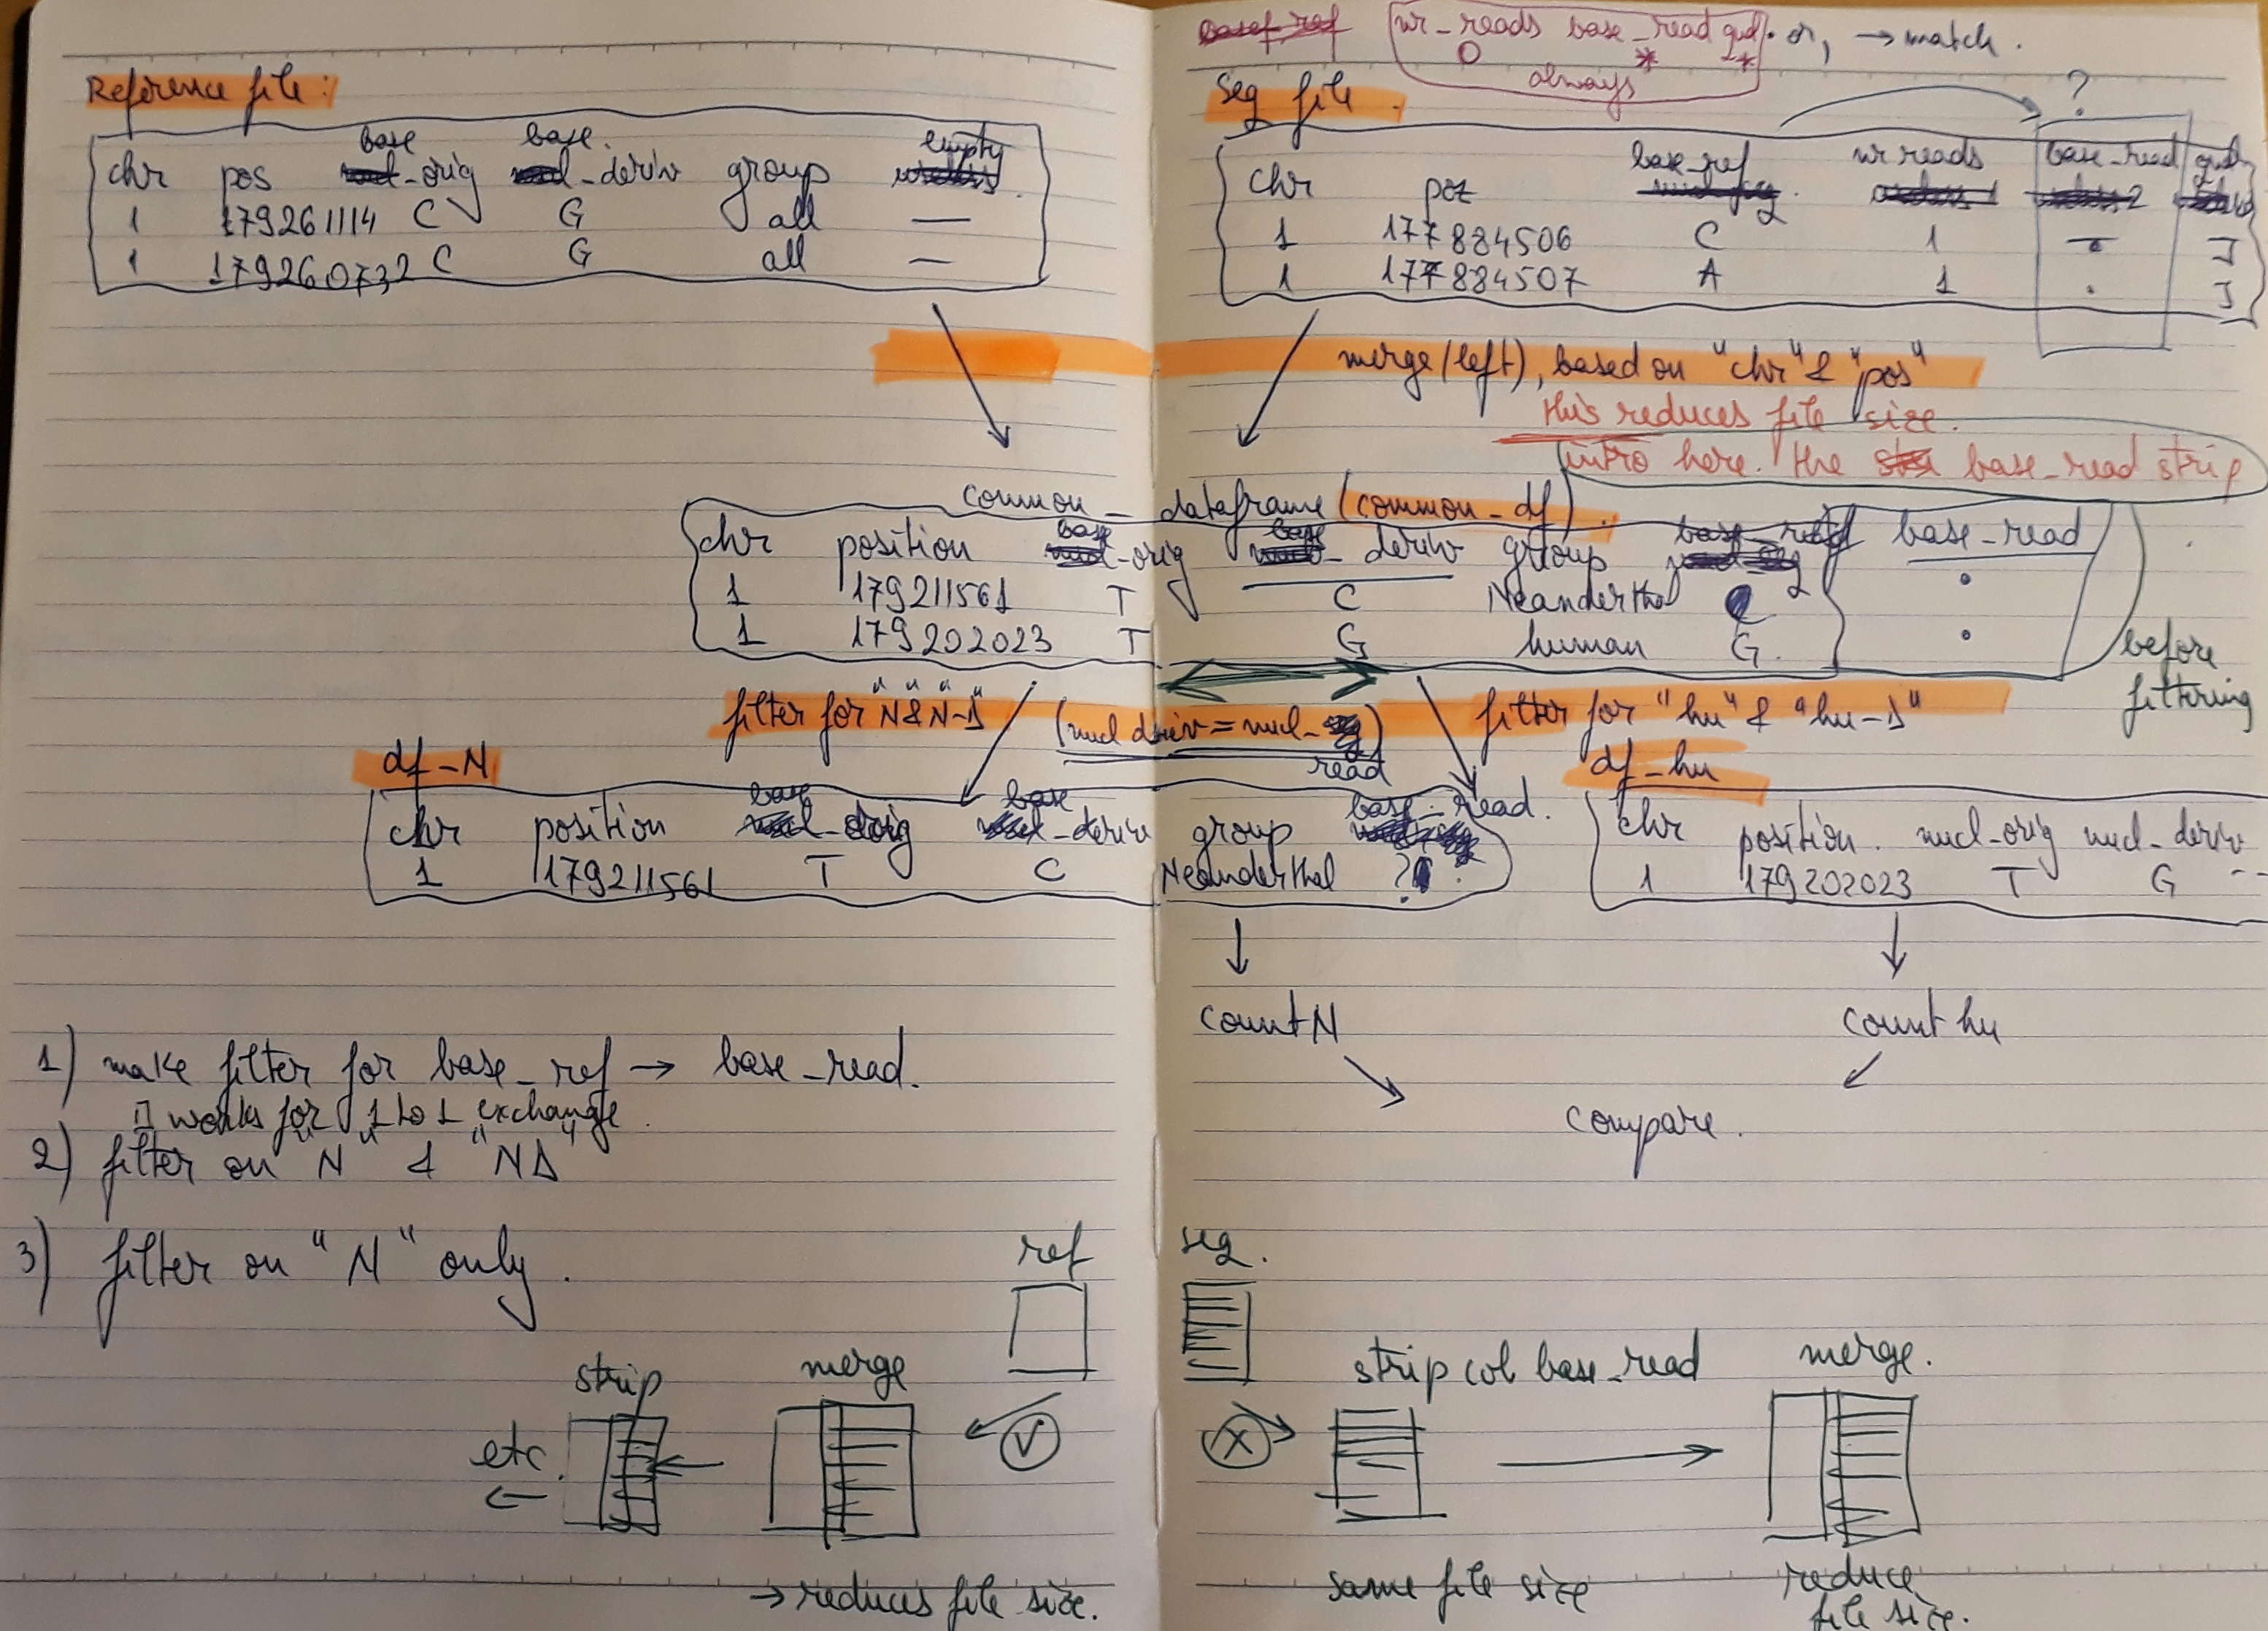 Reference file:
chr pos base_orig base_deriv group empty
1 179261114 C G all —
1 179260732 C G all —
nr_reads base_read qual • or , → match.
0 * *
always
Seq file.
?
chr pos base_ref nr reads base_read qual
1 177884506 C 1 . J
1 177884507 A 1 . J
merge (left), based on "chr" & "pos"
this reduces file size.
intro here. the base_read strip
common_dataframe (common_df).
chr position base_orig base_deriv group base_ref base_read
1 179211561 T C Neanderthal .
1 179202023 T G human G. .
before
filtering
filter for "N" & "N-1" (nucl deriv = nucl-read) filter for "hu" & "hu-1"
df_N
chr position base_orig base_deriv group base_read.
1 179211561 T C Neanderthal ?
df_hu
chr position. nucl_orig nucl_deriv
1 179202023 T G --
count N count hu
compare.
1) make filter for base_ref → base_read.
works for 1 to 1 exchange.
2) filter on "N" & "N1"
3) filter on "N" only.
ref
merge
strip
etc.
→ reduces file size.
seq.
strip col base_read
merge.
same file size
reduce
file size.